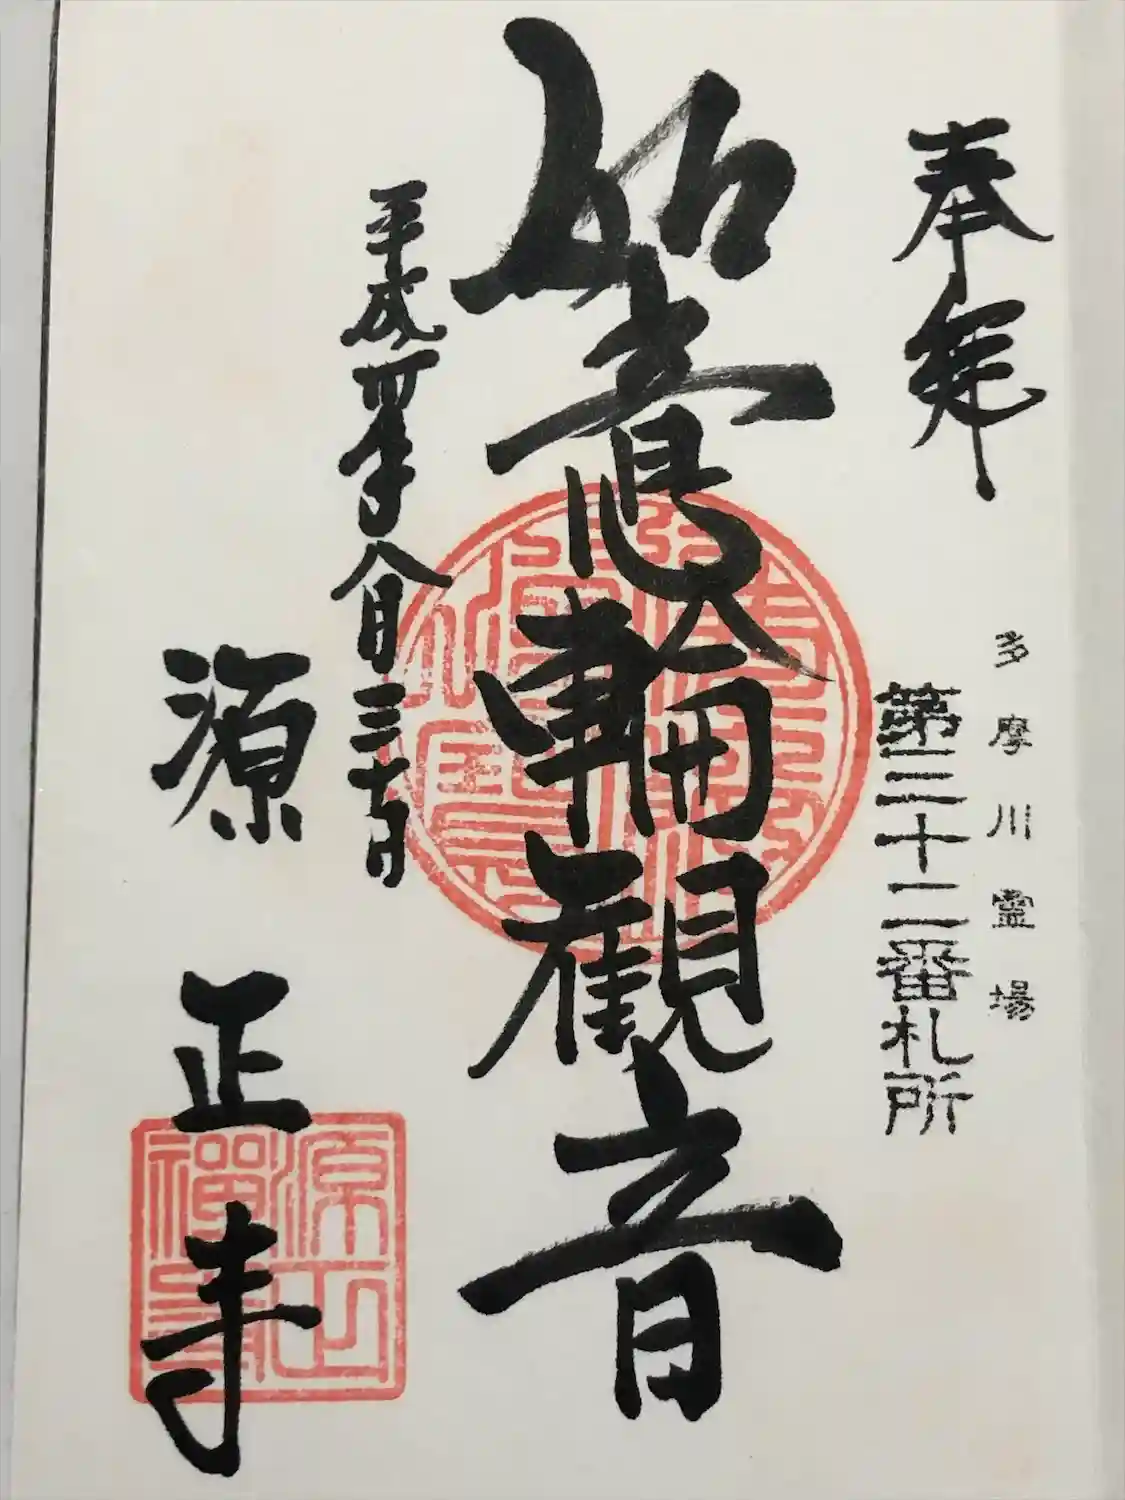 奉拝
多摩川霊場
第三十二番札所
如意輪観音
平成四年八月三十日
源正寺
源正禪寺